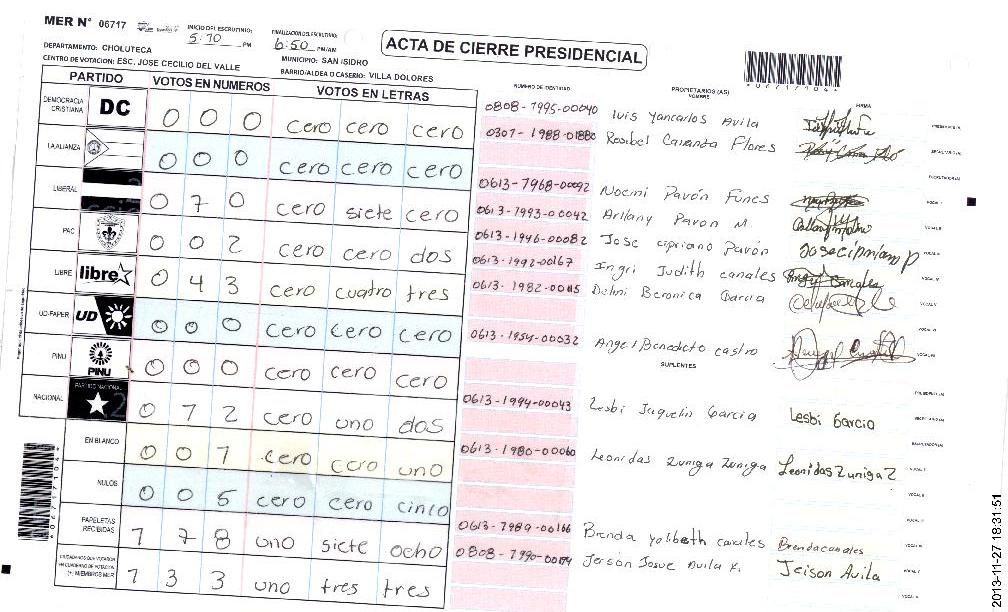 MER N° 06717
INICIO DEL ESCRUTINIO: 5:10 PM
FINALIZACION DEL ESCRUTINIO: 6:50 PM/AM
ACTA DE CIERRE PRESIDENCIAL
DEPARTAMENTO: CHOLUTECA
MUNICIPIO: SAN ISIDRO
CENTRO DE VOTACION: ESC. JOSE CECILIO DEL VALLE
BARRIO/ALDEA O CASERIO: VILLA DOLORES
*06717104*
PARTIDO VOTOS EN NUMEROS VOTOS EN LETRAS
DEMOCRACIA CRISTIANA DC 0 0 0 cero cero cero
LA ALIANZA 0 0 0 cero cero cero
LIBERAL 0 7 0 cero siete cero
PAC 0 0 2 cero cero dos
LIBRE libre 0 4 3 cero cuatro tres
UD-FAPER UD 0 0 0 cero cero cero
PINU PINU 0 0 0 cero cero cero
NACIONAL PARTIDO NACIONAL 0 1 2 cero uno dos
EN BLANCO 0 0 1 cero cero uno
NULOS 0 0 5 cero cero cinco
PAPELETAS RECIBIDAS 1 7 8 uno siete ocho
CIUDADANOS QUE VOTARON EN CUADERNO DE VOTACION (+) MIEMBROS MER 1 3 3 uno tres tres
NUMERO DE IDENTIDAD PROPIETARIOS (AS) NOMBRE FIRMA
0808-1995-00040 luis Yancarlos Avila PRESIDENTE(A)
0307-1988-01880 Rosibel Canada Flores SECRETARIO(A)
ESCRUTADOR(A)
0613-1968-00092 Noemi Pavón Funes VOCAL I
0613-1993-00042 Arllany Pavon M VOCAL II
0613-1946-00082 Jose cipriano Pavón Josecipriano P VOCAL III
0613-1992-00167 Ingri Judith canales Ingri Canales VOCAL IV
0613-1982-00115 Delmi Beronica Garcia VOCAL V
VOCAL VI
0613-1954-00032 Angel Benedicto castro VOCAL VII
SUPLENTES
PRESIDENTE(A)
0613-1994-00043 Lesbi Jaquelin Garcia Lesbi Garcia SECRETARIO(A)
ESCRUTADOR(A)
0613-1980-00060 Leonidas Zuniga Zuniga Leonidas Zuniga Z VOCAL I
VOCAL II
0613-1989-00166 Brenda yolibeth canales Brenda canales
0808-1990-00174 Jerson Josue Avila K. Jeison Avila VOCAL V
VOCAL VI
*06717104*
2013-11-27 18:31:51